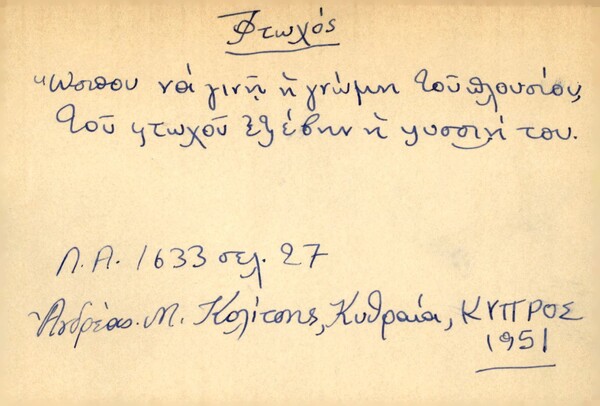 Φτωχός
Ὥσπου νά γινῇ ἡ γνώμη τοῦ πλουσίου,
τοῦ φτωχοῦ ἐξέβην ἡ ψυσσιή του.
Λ.Α. 1633 σελ. 27
Ἀνδρέας Μ. Κολίτσης, Κυθραία, ΚΥΠΡΟΣ
1951